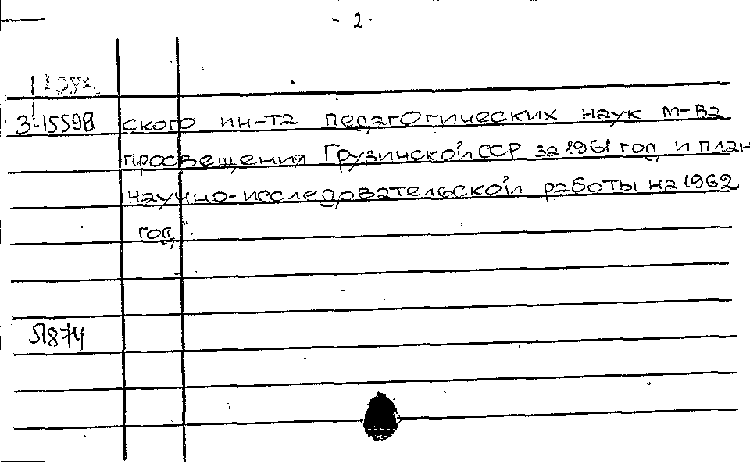 - 2 -
3-15598 ского ин-та педагогических наук М-ва
просвещения Грузинской ССР за 1961 год и план
научно-исследовательской работы на 1962
год.
Я874